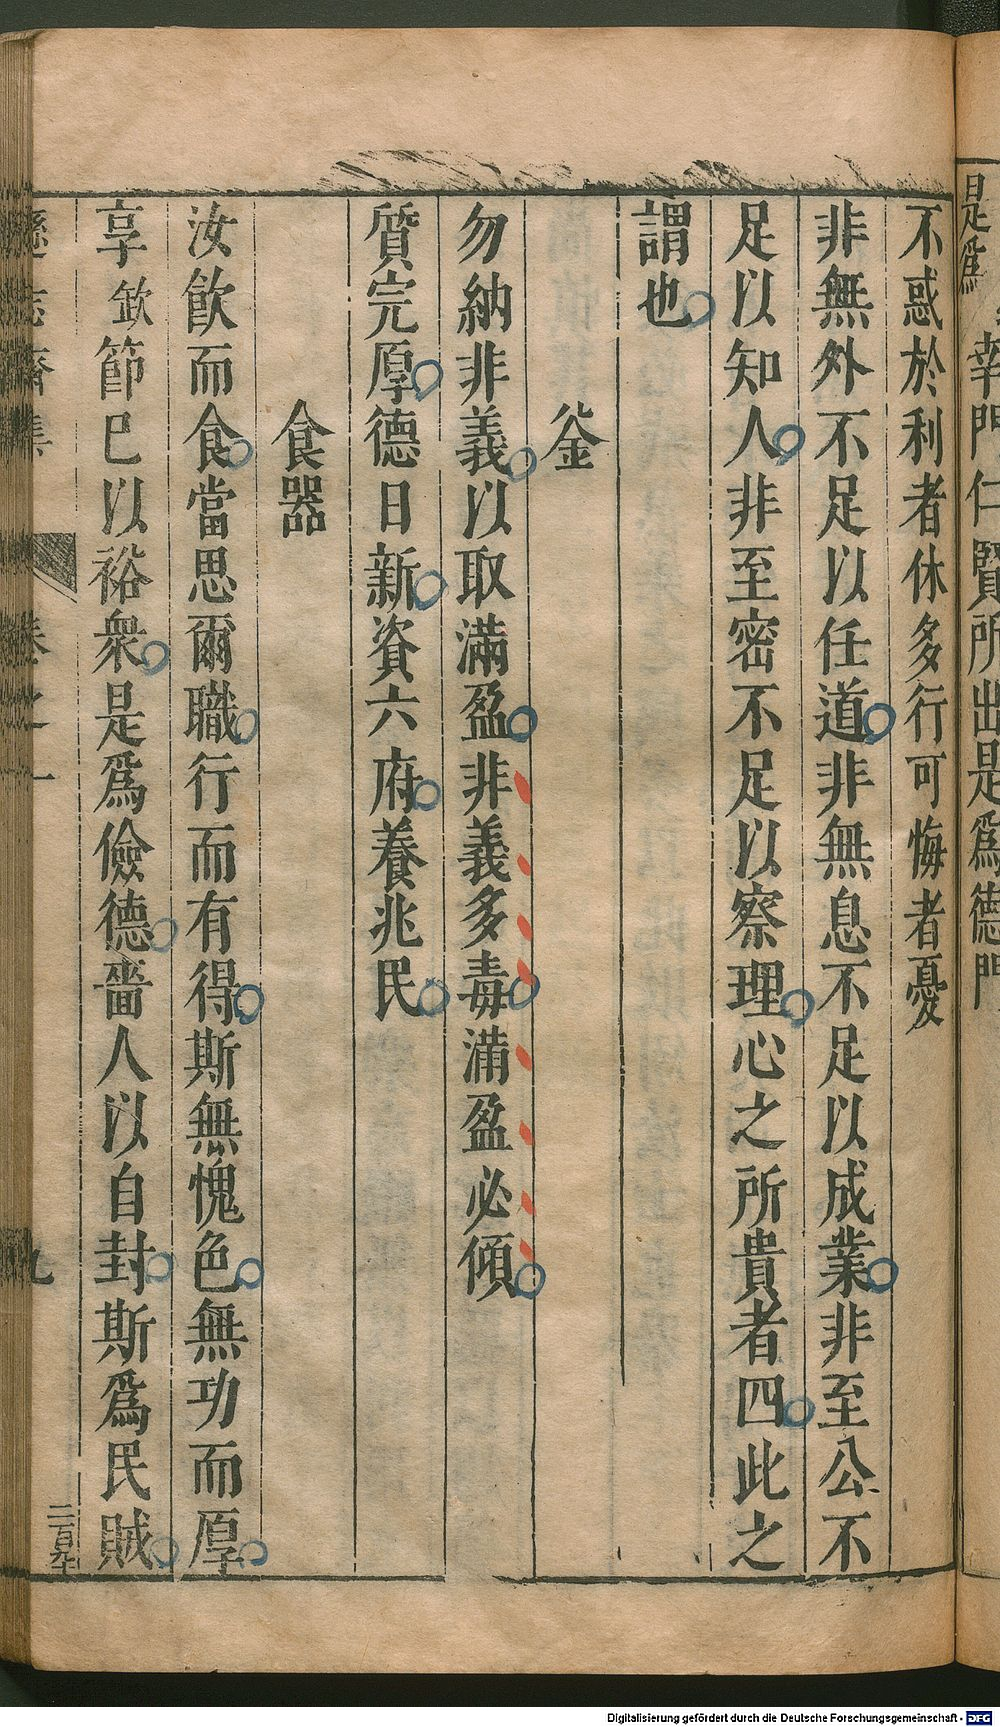 是爲
幸門仁賢所出是爲德門
不惑於利者休多行可悔者憂
非無外不足以任道非無息不足以成業非至公不
足以知人非至密不足以察理心之所貴者四此之
謂也
釜
勿納非義以取滿盈非義多毒滿盈必傾
質完厚德日新資六府養兆民
食器
汝飲而食當思爾職行而有得斯無愧色無功而厚
享欿節巳以裕衆是爲儉德嗇人以自封斯爲民賊
遜志齋集 卷之一 九
Digitalisierung gefördert durch die Deutsche Forschungsgemeinschaft - DFG